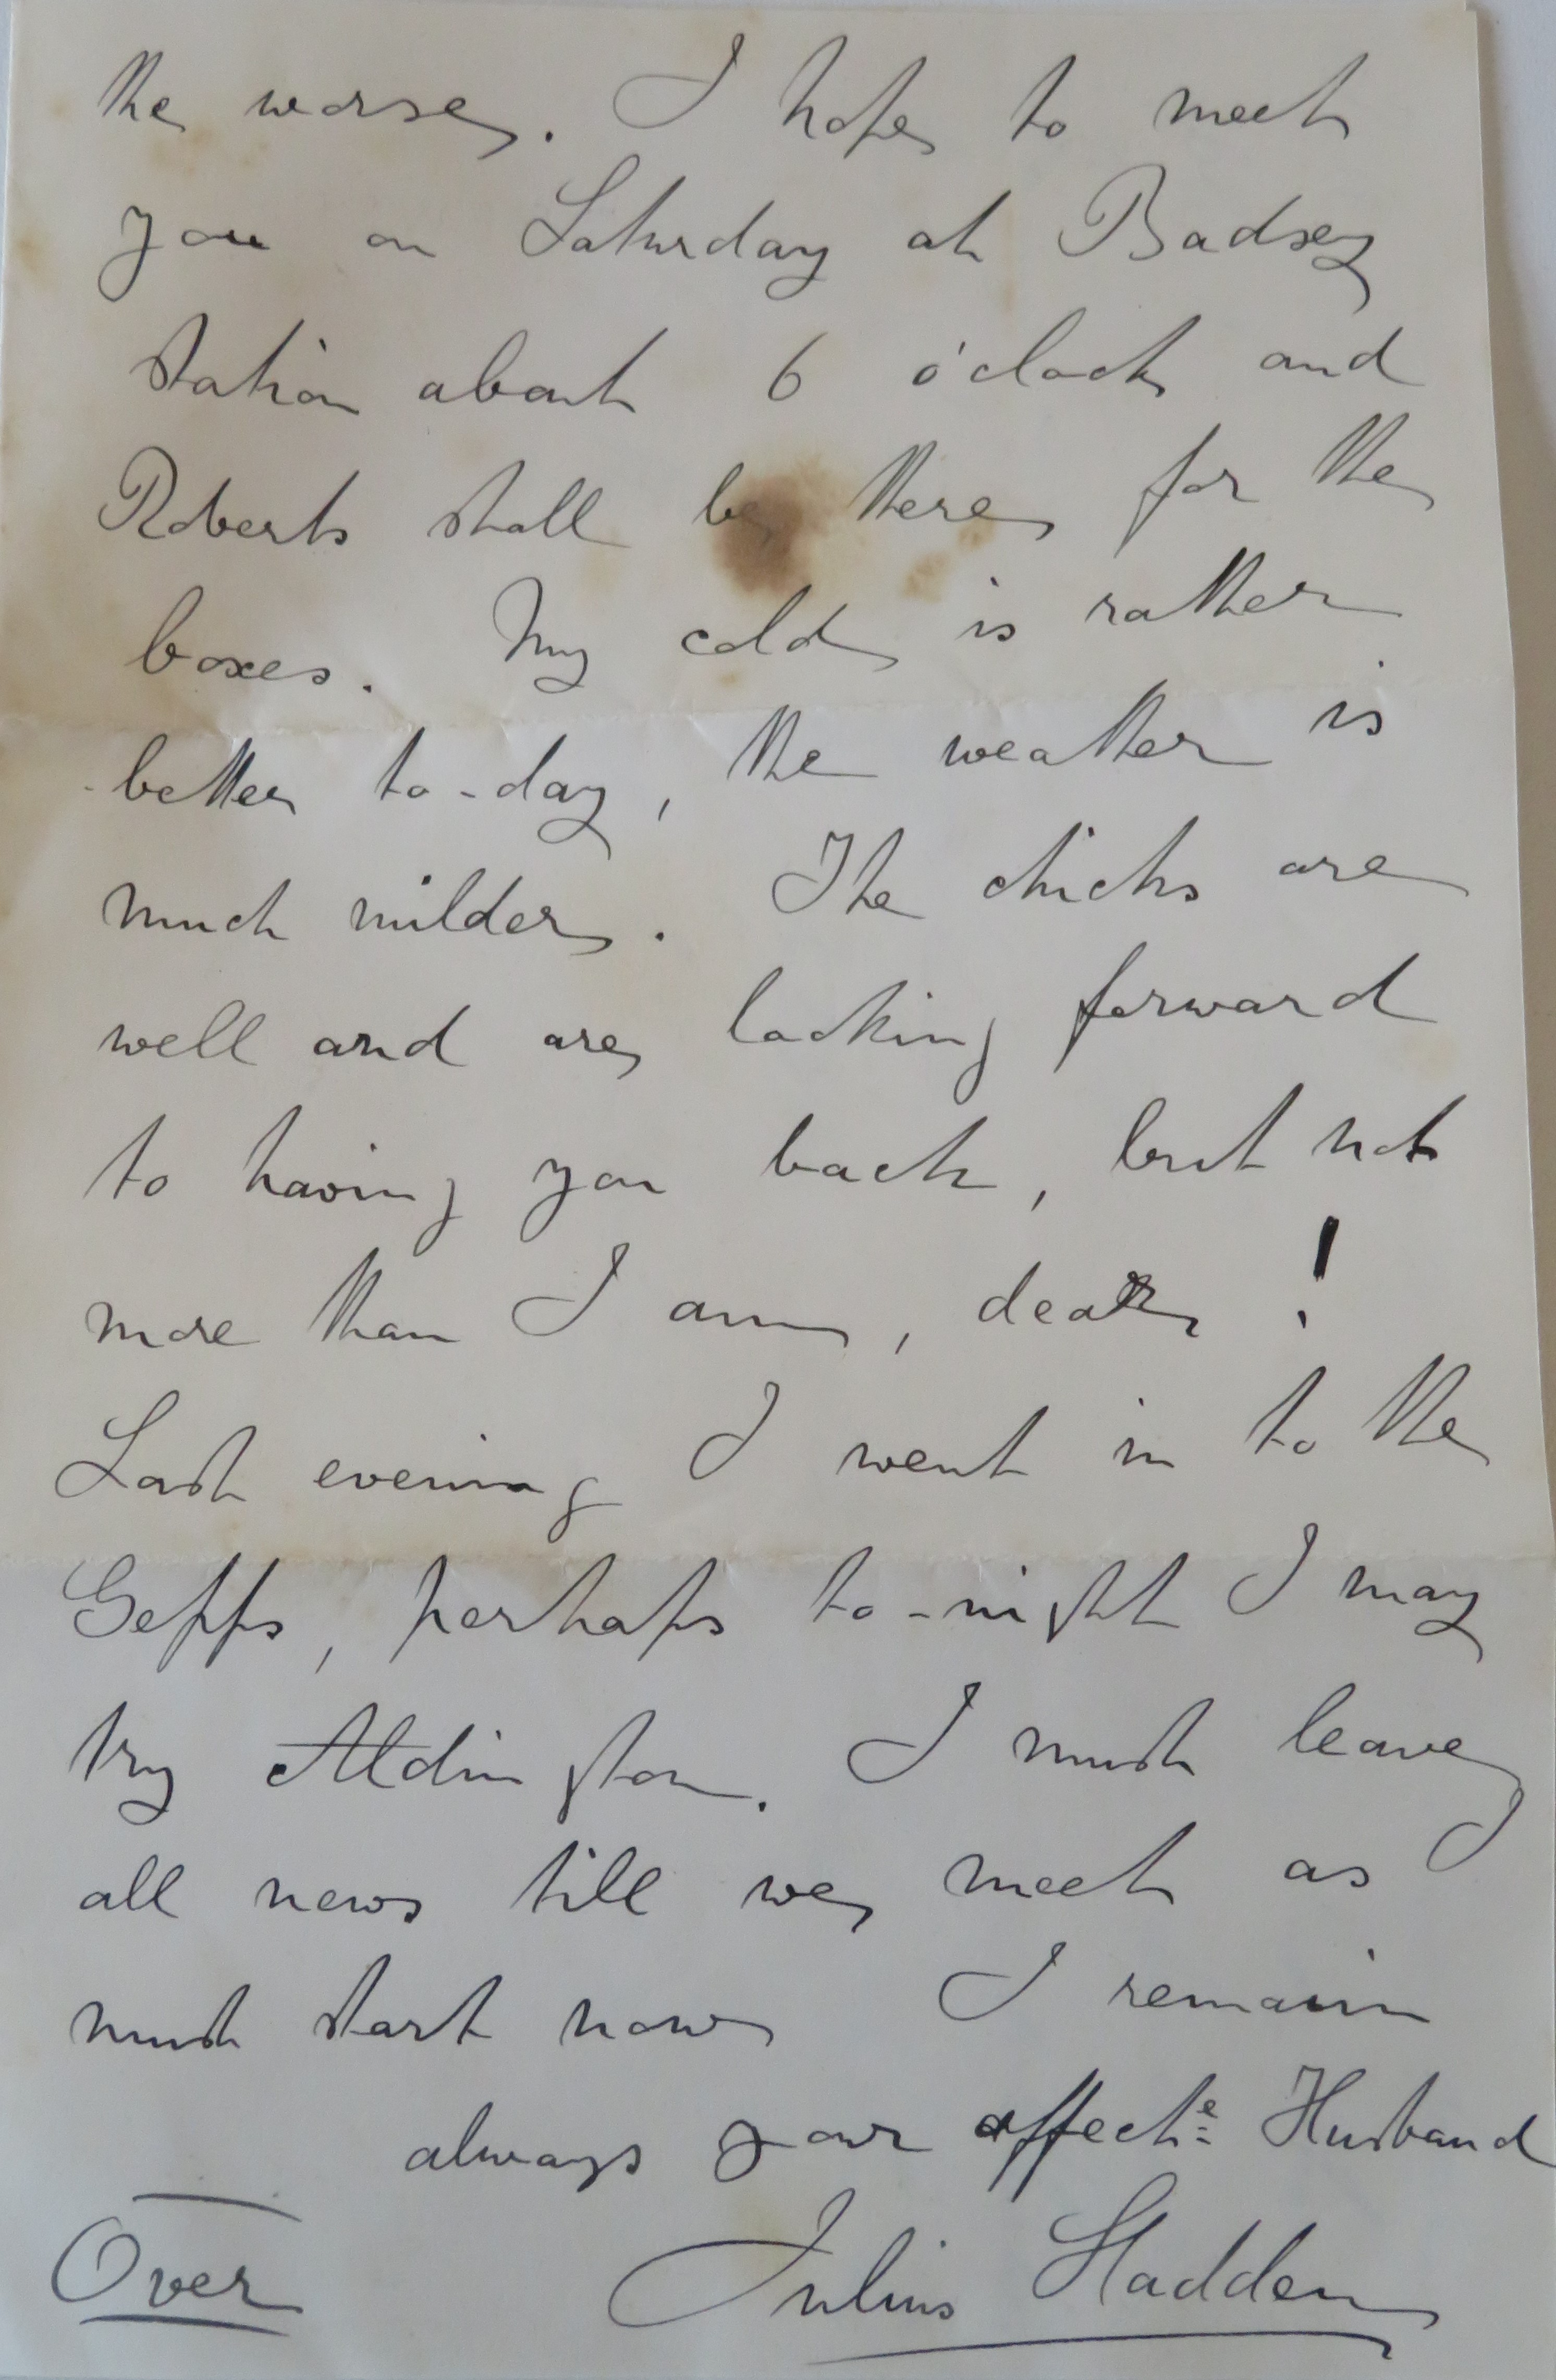 the worse. I hope to meet
you on Saturday at Badsey
station about 6 o'clock and
Roberts shall be there for the
boxes. My cold is rather
better to-day, the weather is
much milder. The chicks are
well and are looking forward
to having you back, but not
more than I am, dear!
Last evening I went in to the
Gepps, perhaps to-night I may
try Aldington. I must leave
all news till we meet as I
must start now I remain
always your affecte Husband
Over Julius Sladden